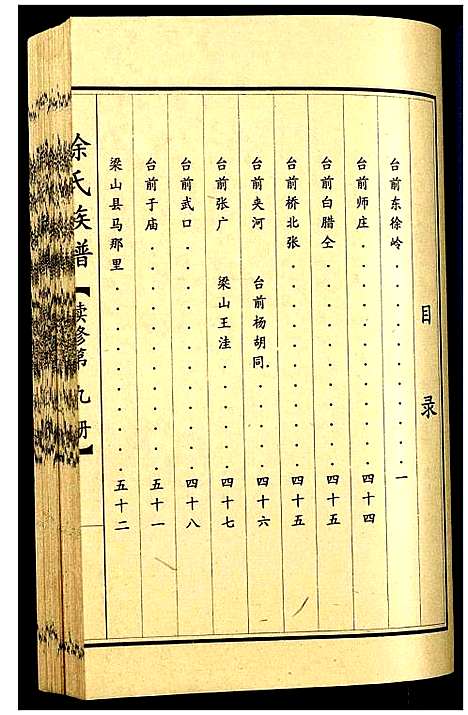 目录
台前东徐岭．．．．．．．．．．．一
台前师庄．．．．．．．．．．．四十四
台前白腊仝．．．．．．．．．．四十五
台前桥北张．．．．．．．．．．四十五
台前夹河 台前杨胡同．．．．．四十六
台前张广 梁山王洼．．．．．．四十七
台前武口．．．．．．．．．．．四十八
台前于庙．．．．．．．．．．．五十一
梁山县马那里．．．．．．．．．五十二
余氏族谱【续修第九册】